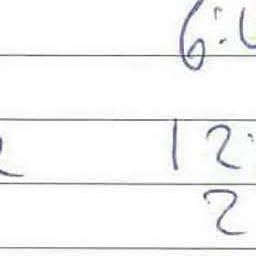 6:
12:
2